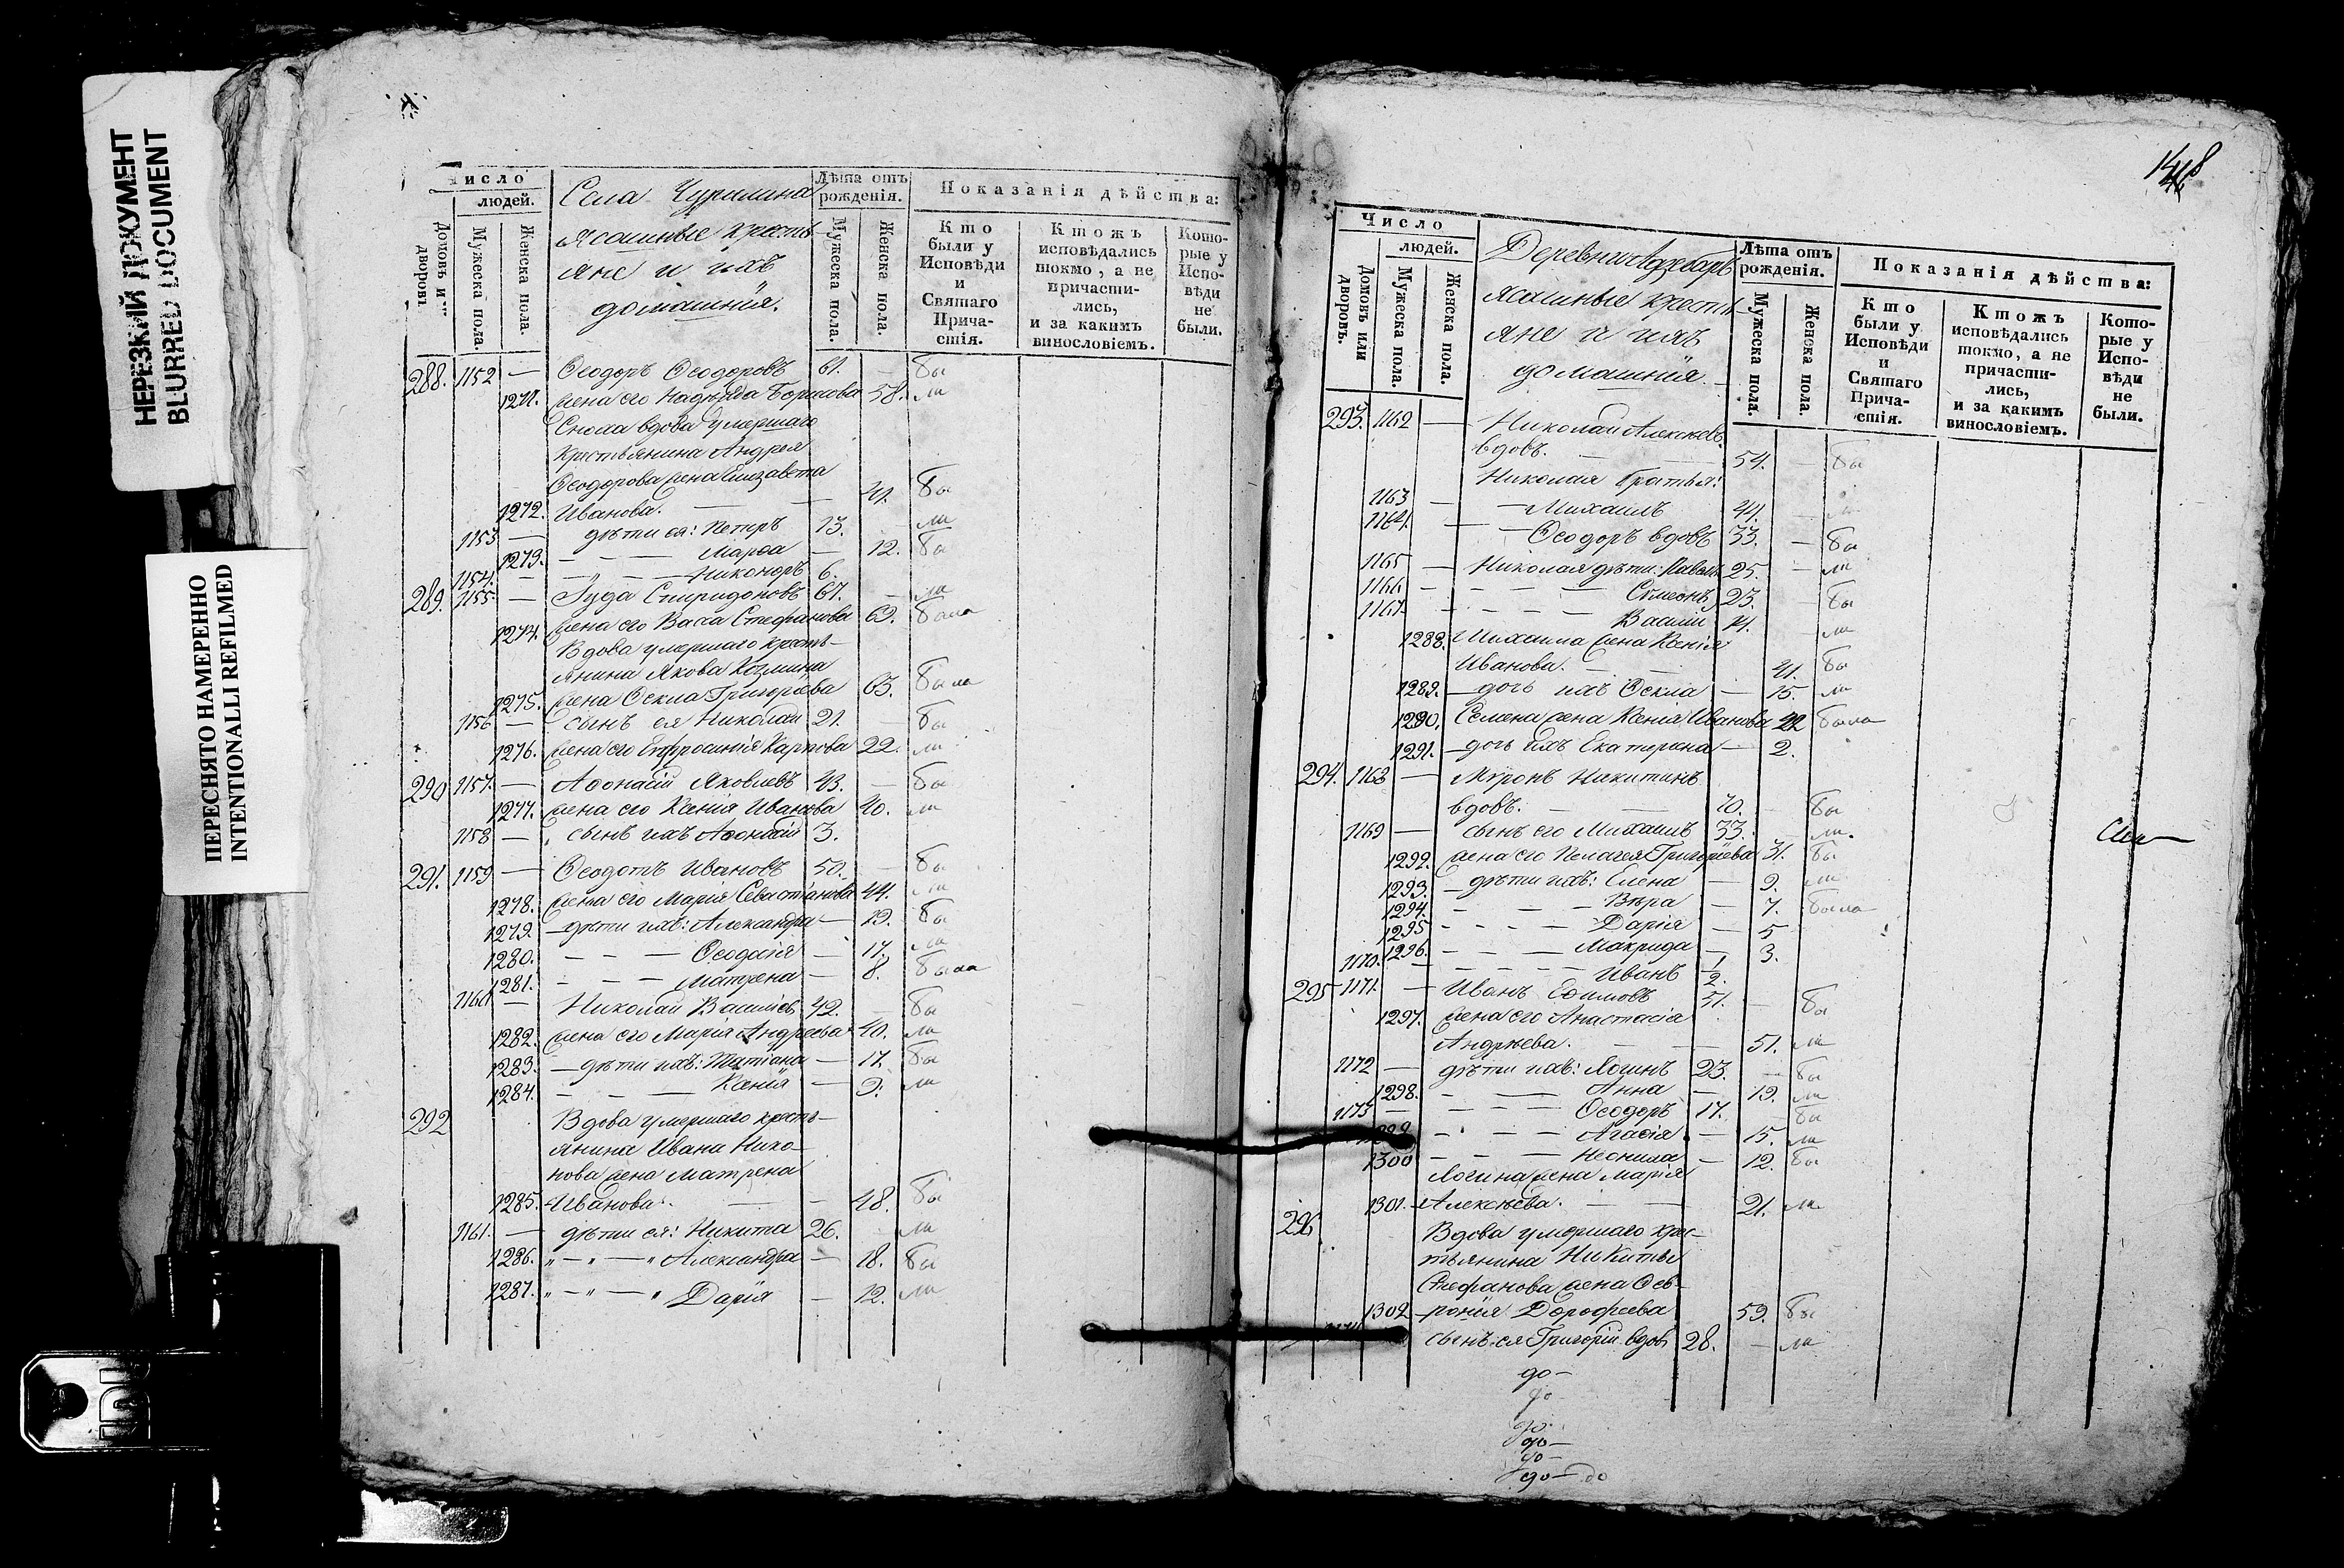 НЕРЕЗКИЙ ДОКУМЕНТ
BLURRED DOCUMENT
ПЕРЕСНЯТО НАМЕРЕННО
INTENTIONALLI REFILMED
Число
людей.
Домовъ и
дворовъ.
Мужеска пола.
Женска пола.
Села Чурилина
ясашные кресть-
яне и ихъ
домашнія.
Лѣта отъ
рожденія.
Мужеска пола.
Женска пола.
Показанія дѣйства:
Кто
были у
Исповѣди
и
Святаго
Прича-
стія.
Ктожъ
исповѣдались
токмо, а не
причасти-
лись,
и за какимъ
винословіемъ.
Кото-
рые у
Испо-
вѣди
не
были.
288. 1152 — Ѳеодоръ Ѳеодоровъ 61. — бы
1271. жена его Надежда Борисова 58. ли
Сноха вдова умершаго
крестьянина Андрея
Ѳеодорова жена Елизавета
1272. Иванова. — — 41. бы
1153 — дѣти ея: Петръ 13. ли
1273. — — Марѳа — 12. бы
1154. — — Никоноръ 6.
289. 1155 — Іуда Спиридоновъ 67. — ли
1274. жена его Васса Стефанова 69. была
Вдова умершаго кресть-
янина Якова Козмина
1275. жена Ѳекла Григорьева 63. была
1156 — сынъ ея Николай 21. — бы
1276. жена его Евфросинія Карпова 22. ли
290 1157. — Аѳонасій Яковлевъ 43. — бы
1277. жена его Ксенія Иванова 40. ли
1158 — сынъ ихъ Аѳонасій 3.
291. 1159 — Ѳеодотъ Ивановъ 50. — бы
1278. жена его Марія Севастіанова 44. ли
1279. — дѣти ихъ: Александра — 19. бы
1280. — — — Ѳеодосія — 17. ли
1281. — — — Матрена — 8. была
1160 — Николай Васильевъ 42. — бы
1282. жена его Марія Андреева 40. ли
1283. — дѣти ихъ: Татіана — 17. бы
1284. — — — Ксенія — 9. ли
292 Вдова умершаго кресть-
янина Ивана Нико-
нова жена Матрена
1285. Иванова. — — 48. бы
1161. — дѣти ея: Никита 26. ли
1286. „ — „ — „ Александра — 18. бы
1287. „ — „ — „ Дарія — 12. ли
148
Число
людей.
Домовъ или
дворовъ.
Мужеска пола.
Женска пола.
Деревни
ясашные кресть-
яне и ихъ
домашнія.
Лѣта отъ
рожденія.
Мужеска пола.
Женска пола.
Показанія дѣйства:
Кто
были у
Исповѣди
и
Святаго
Прича-
стія.
Ктожъ
исповѣдались
токмо, а не
причасти-
лись,
и за какимъ
винословіемъ.
Кото-
рые у
Испо-
вѣди
не
были.
293. 1162 — Николай Алексѣевъ
вдовъ. — — 54. — бы
Николая братья:
1163 — — Михаилъ 44. — ли
1164. — — Ѳеодоръ вдовъ 33. — бы
1165 — Николая дѣти: Павелъ 25. — ли
1166 — — — — Сѵмеонъ 23. — бы
1167. — — — — Василій — ли
1288. Михаила жена Ксенія
Иванова. — — 41. бы
1289. — дочь ихъ Ѳекла — 15. ли
1290. Семена жена Ксенія Иванова 22 была
1291. — дочь ихъ Екатерина — 2.
294. 1168 — Мѵронъ Никитинъ
вдовъ. — — 70. — бы
1169 — сынъ его Михаилъ 33. — ли.
1292. жена его Пелагея Григорьева 31. бы
1293. — дѣти ихъ: Елена — 9. ли
1294. — — — Вѣра — 7. была
1295 — — — Дарія — 5
1296. — — — Макрида — 3.
1170. — — — — Иванъ 1/2.
295 1171. — Иванъ Ефимовъ 51. — бы
1297. жена его Анастасія
Андрѣева. — — 51. ли
1172 — дѣти ихъ: Логинъ 23. — бы
1298. — — Анна — 19. ли
1173 — — — — Ѳеодоръ 17. — бы
— — — Агафія — 15. ли
1300 — — — Неонила — 12. бы
Логина жена Марія
1301. Алексѣева. — — 21. ли
296 Вдова умершаго крес-
тьянина Никиты
Стефанова жена Ѳев-
1302 ронія Дорофеева 59. бы
сынъ ея Григорій вдовъ 28. — ли
до —
до
до
до —
до —
до — до